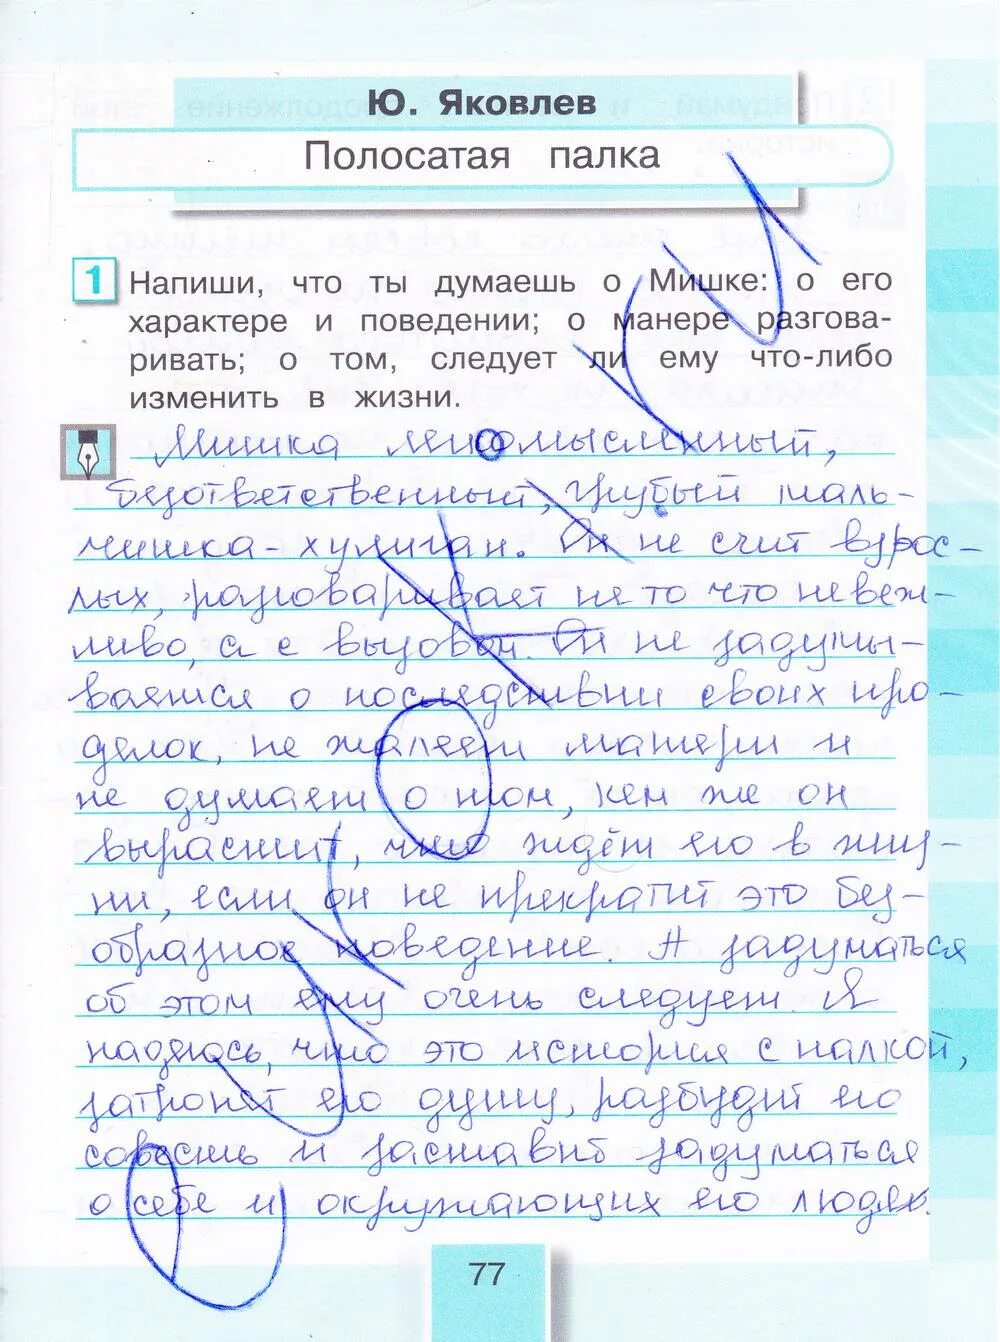 Ю. Яковлев
Полосатая палка
1 Напиши, что ты думаешь о Мишке: о его
характере и поведении; о манере разгова-
ривать; о том, следует ли ему что-либо
изменить в жизни.
Мишка легкомысленный,
безответственный, грубый маль-
чишка-хулиган. Он не счит взрос-
лых, разговаривает не то что невеж-
ливо, а с вызовом. Он не задумы-
вается о последствии своих про-
делок, не жалеет матери и
не думает о том, кем же он
вырастит, что ждёт его в жиз-
ни, если он не прекратит это без-
образное поведение. А задуматься
об этом ему очень следует. Я
надеюсь, что это история с палкой,
затронет его душу, разбудит его
совесть и заставит задуматься
о себе и окружающих его людях.
77